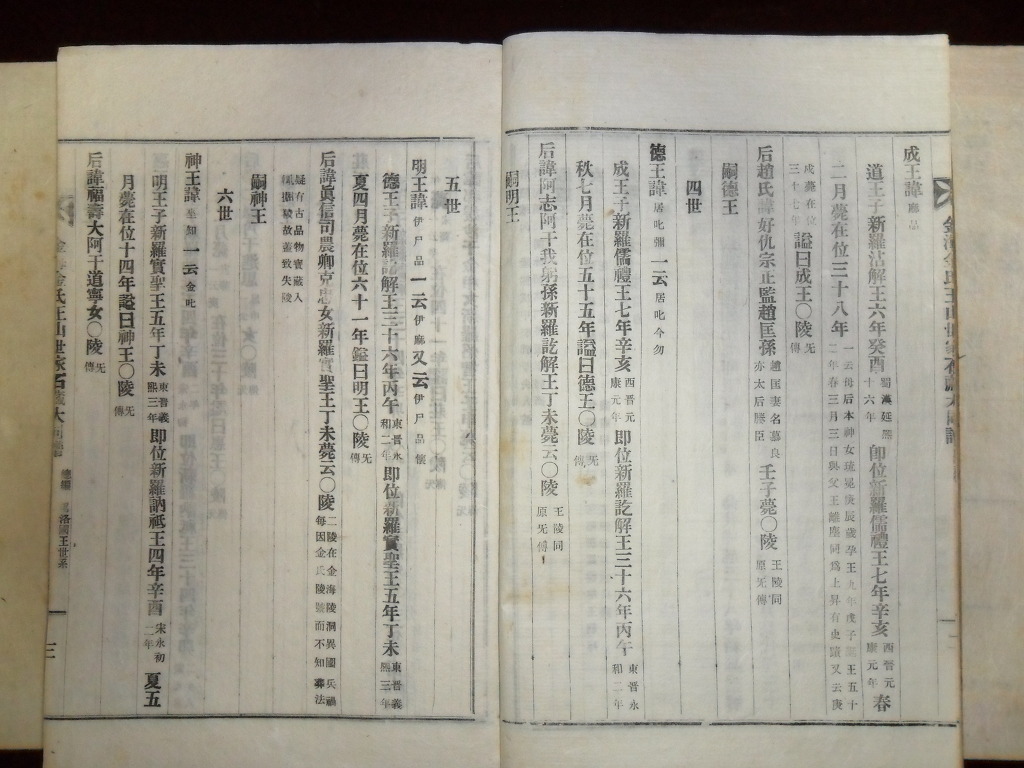 成王諱麻品
道王子新羅沾解王六年癸酉蜀漢延熙十六年 卽位新羅儒禮王七年辛亥西晉元康元年春
二月薨在位三十八年
戌薨在位三十七年諡曰成王〇陵旡傳
后趙氏諱好仇宗正監趙匡孫趙匡妻名慕良亦太后媵臣壬子薨〇陵王陵同原旡傳
嗣德王
四世
德王諱居叱彌一云居叱今勿
成王子新羅儒禮王七年辛亥西晉元康元年卽位新羅訖解王三十六年丙午東晉永和二年
秋七月薨在位五十五年諡曰德王〇陵旡傳
后諱阿志阿干我躬孫新羅訖解王丁未薨云〇陵王陵同原旡傳
嗣明王
五世
明王諱伊尸品一云伊麻又云伊尸品懷
德王子新羅訖解王三十六年丙午東晉永和二年卽位新羅實聖王五年丁未東晉義熙三年
夏四月薨在位六十一年諡曰明王〇陵旡傳
后諱眞信司農卿克忠女新羅實聖王丁未薨云〇陵二陵在金海陵洞異國兵禍每因金氏陵雖而不知葬法
疑有古品物寶藏入
故蓋致失陵
嗣神王
六世
神王諱坐知一云金叱
明王子新羅實聖王五年丁未東晉義熙三年卽位新羅訥祗王四年辛酉宋永初二年夏五
月薨在位十四年諡曰神王〇陵旡傳
后諱福壽大阿干道寧女〇陵旡傳
洛國王世系
三